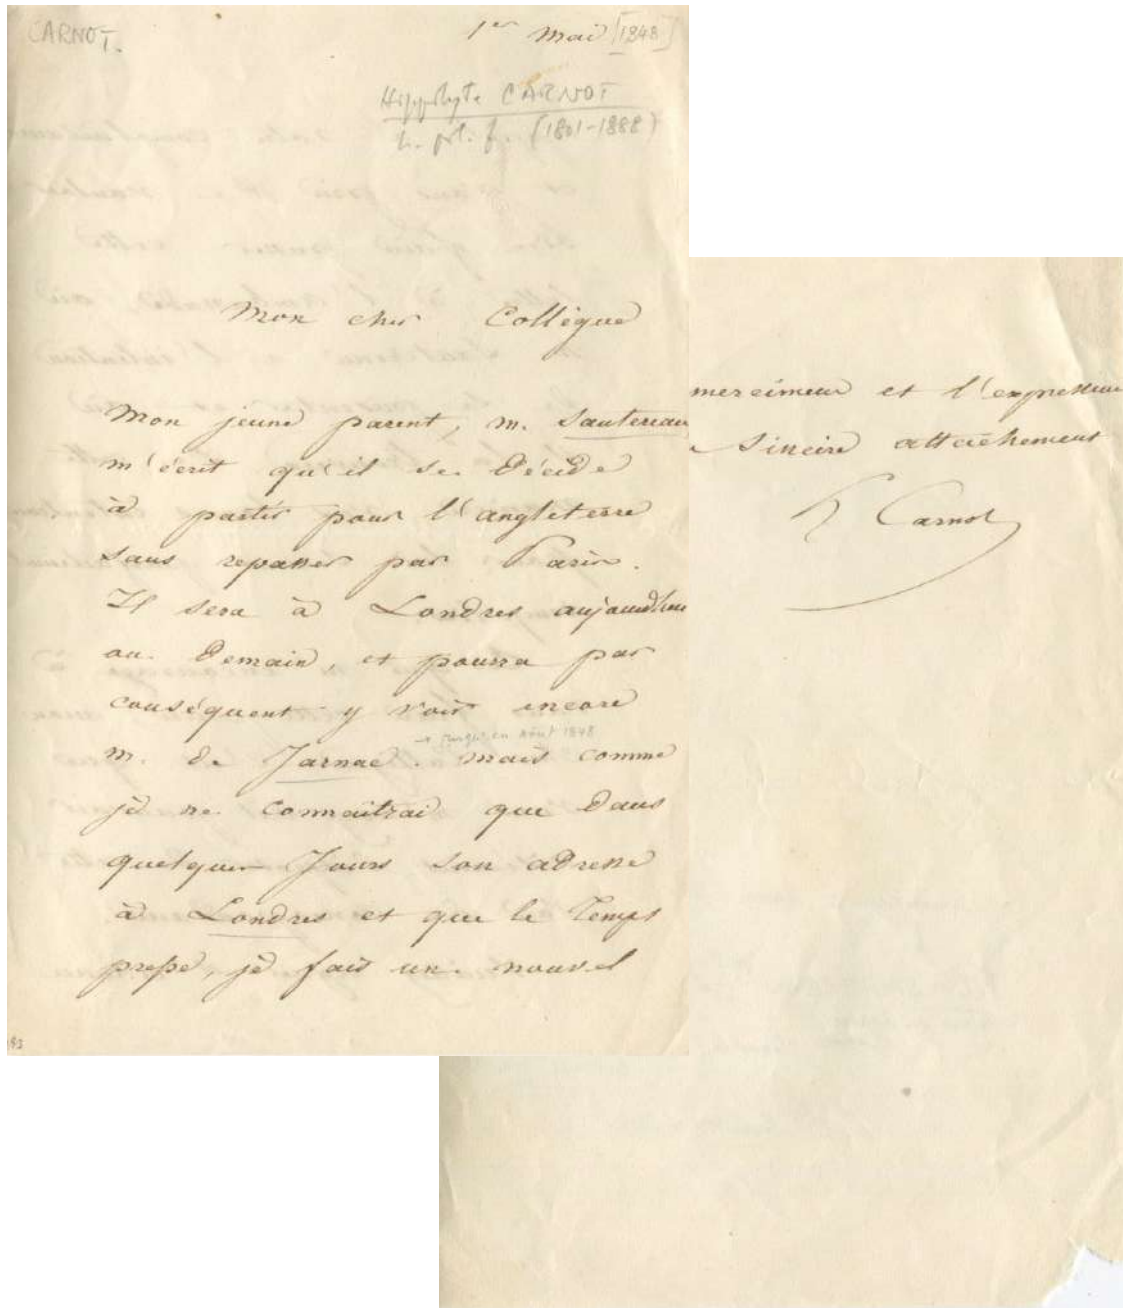 CARNOT.
1er Mai [1848]
Hippolyte CARNOT
h. pl. f. (1801-1888)
Mon cher Collègue
Mon jeune parent, M. Sautereau
m'écrit qu'il se décide
à partir pour l'angleterre
sans repasser par Paris.
Il sera à Londres aujourdhui
ou demain, et pourra par
conséquent y voir encore
→ jusqu'en Août 1848
M. de Jarnac. Mais comme
je ne connaîtrai que dans
quelques Jours son adresse
à Londres et que le Temps
presse, je fais un nouvel
93
merciemens et l'expression
sincère attachement
H Carnot